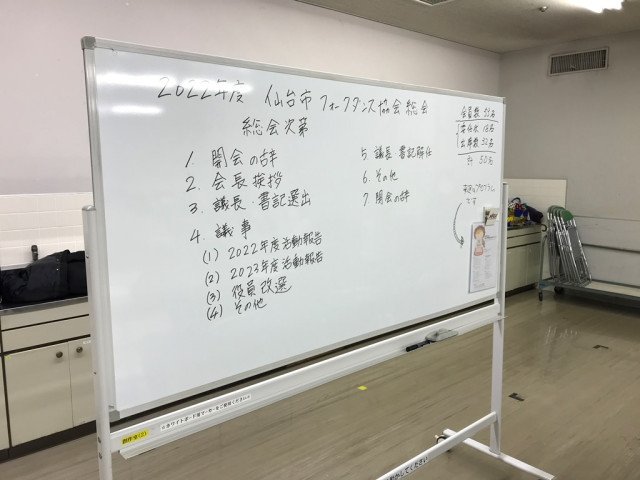 2022年度 仙台市フォークダンス協会総会
総会次第
1. 開会の辞
2. 会長挨拶
3. 議長・書記選出
4. 議事
(1) 2022年度活動報告
(2) 2023年度活動報告
(3) 役員改選
(4) その他
5 議長 書記解任
6. その他
7. 閉会の辞
会員数
委任状 18名
出席数 32名
計 50名
です